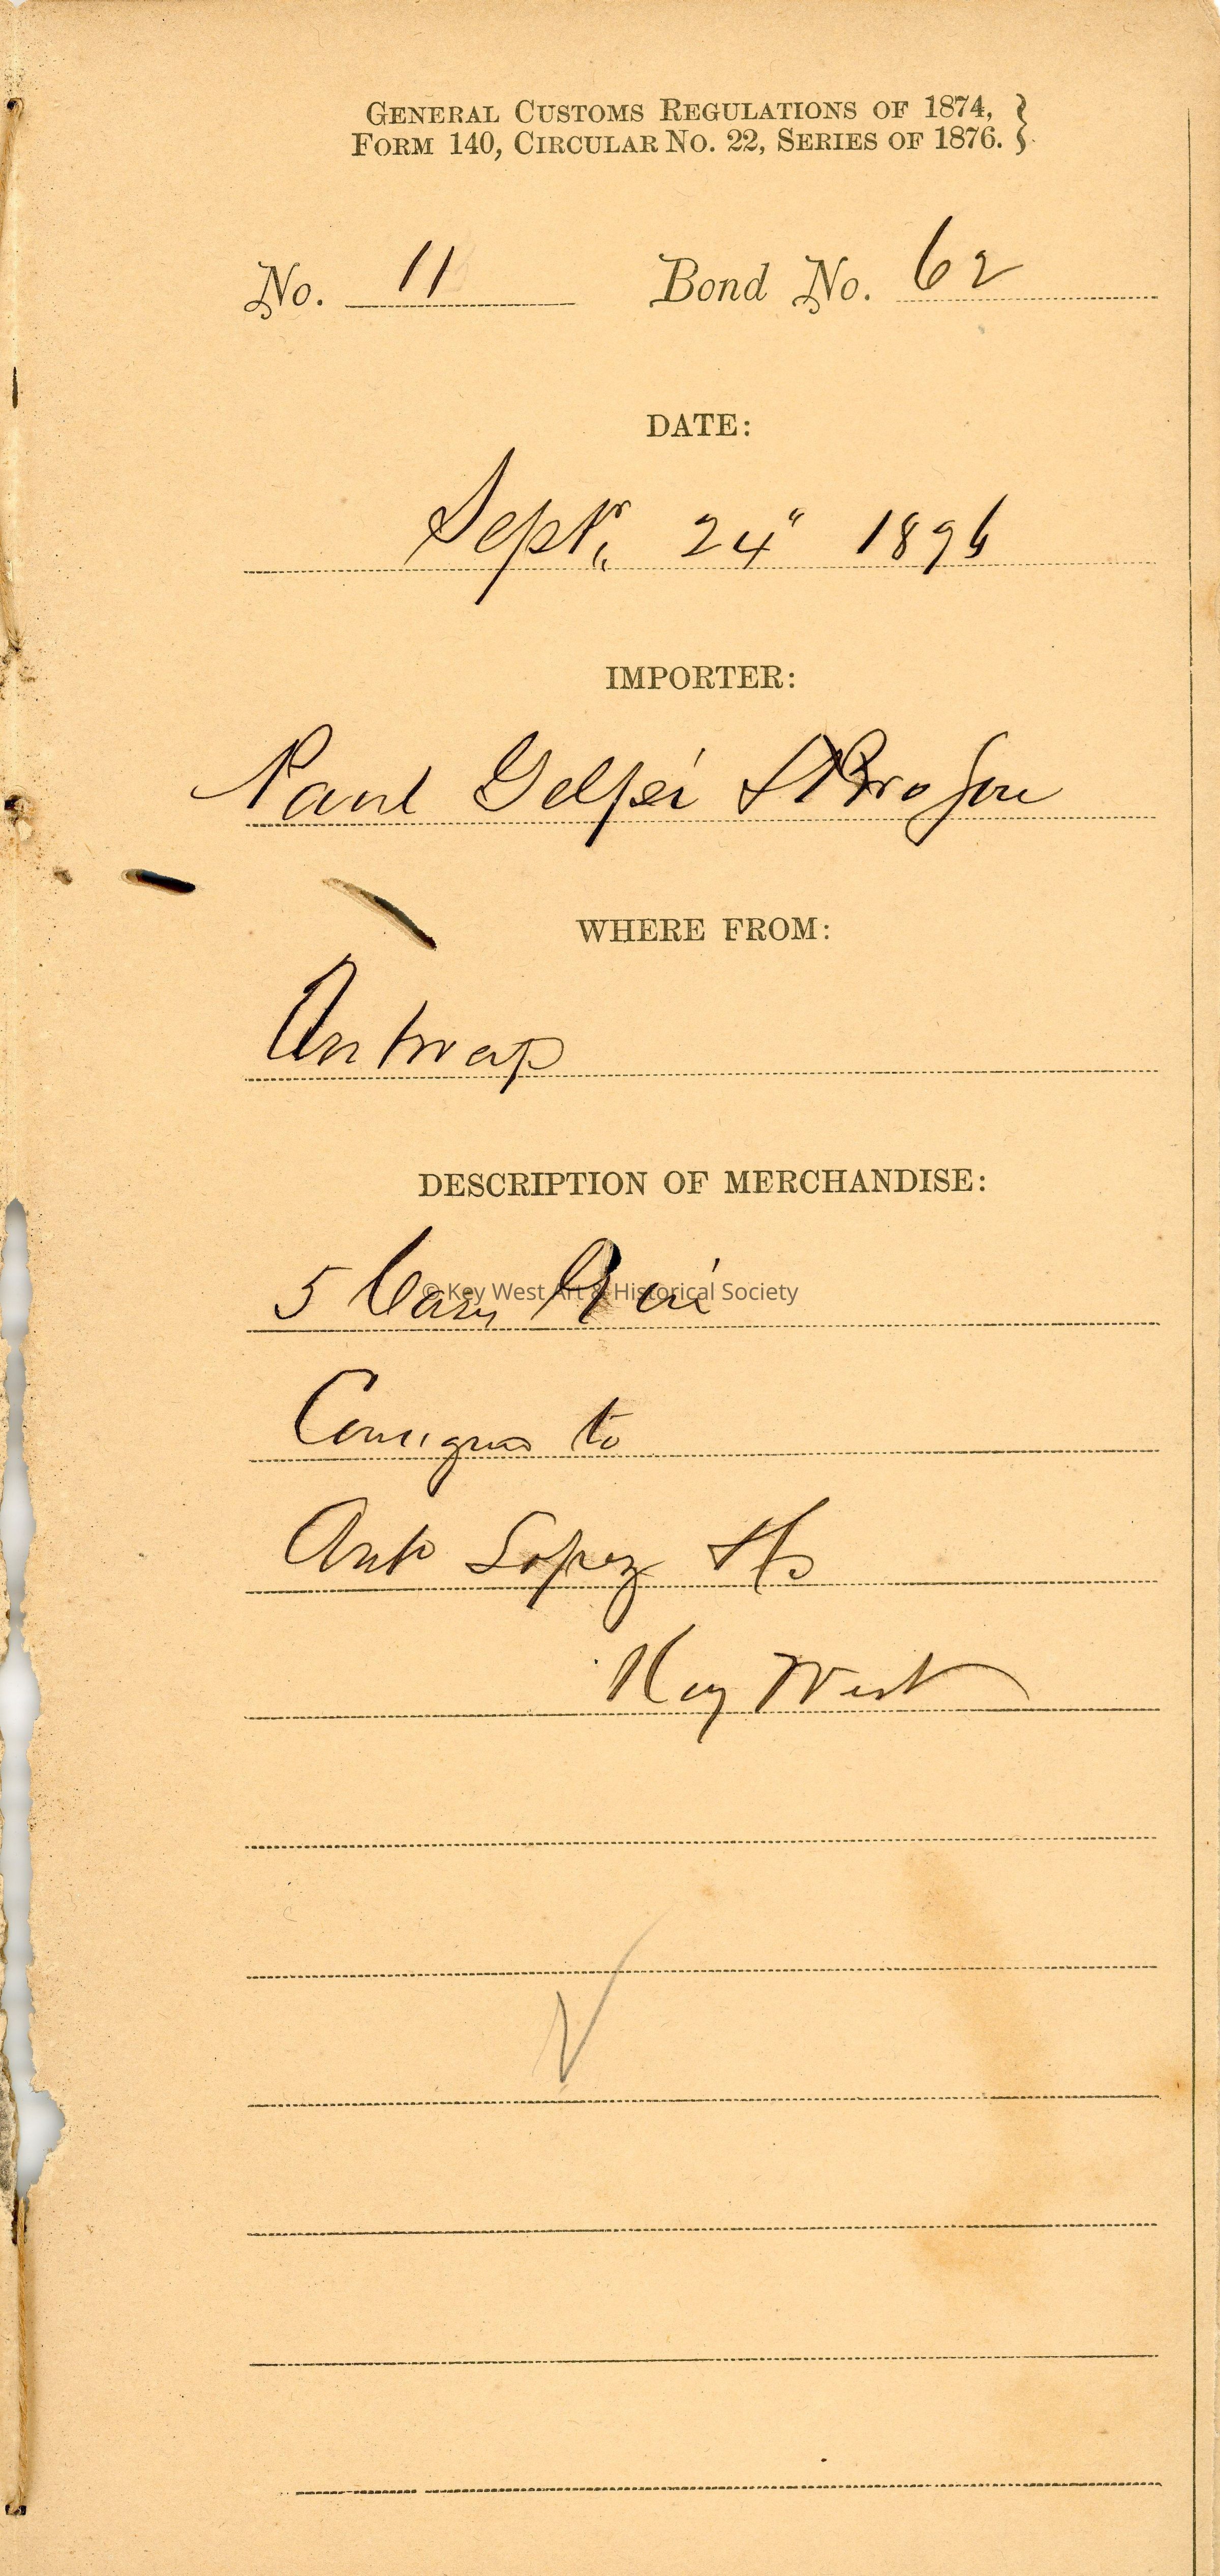 GENERAL CUSTOMS REGULATIONS OF 1874, }
FORM 140, CIRCULAR NO. 22, SERIES OF 1876. }
No. 11 Bond No. 62
DATE:
Septr. 24" 1896
IMPORTER:
Paul Gelpi & Bro
WHERE FROM:
Antwerp
DESCRIPTION OF MERCHANDISE:
5 Cases
© Key West Art & Historical Society
to
Anto Lopez
Key West